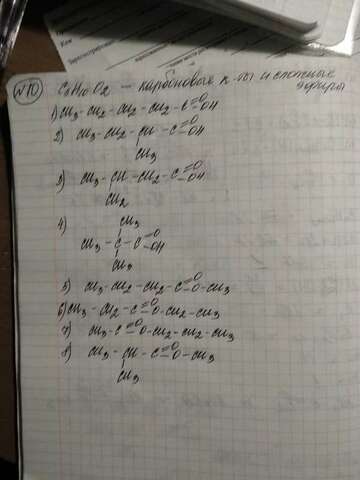 №10 C5H10O2 — карбоновые к-ты и сложные эфиры
1) CH3-CH2-CH2-CH2-C=O OH
2) CH3-CH2-CH-C=O OH
CH3
3) CH3-CH-CH2-C=O OH
CH2
4) CH3
CH3-C-C=O OH
CH3
5) CH3-CH2-CH2-C=O O-CH3
6) CH3-CH2-C=O O-CH2-CH3
7) CH3-C=O O-CH2-CH2-CH3
8) CH3-CH-C=O O-CH3
CH3